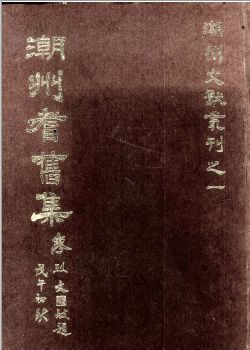 潮州文獻叢刊之一
潮州耆舊集
廖烈文敬題
戊午初秋